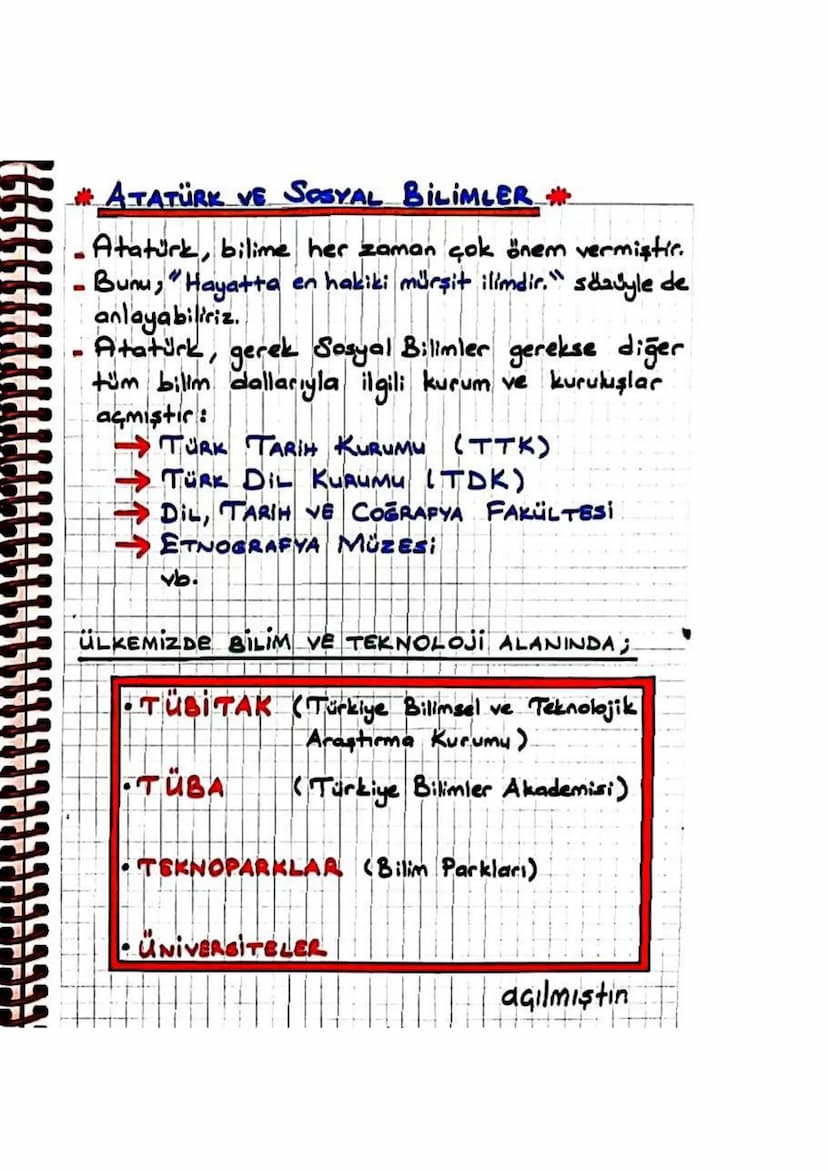 * ATATÜRK VE SOSYAL BİLİMLER *
- Atatürk, bilime her zaman çok önem vermiştir.
- Bunu, "Hayatta en hakiki mürşit ilimdir." sözüyle de
anlayabiliriz.
- Atatürk, gerek Sosyal Bilimler gerekse diğer
tüm bilim dallarıyla ilgili kurum ve kuruluşlar
açmıştır:
→ TÜRK TARİH KURUMU (TTK)
→ TÜRK DİL KURUMU (TDK)
→ DİL, TARİH VE COĞRAFYA FAKÜLTESİ
→ ETNOGRAFYA MÜZESİ
vb.
ÜLKEMİZDE BİLİM VE TEKNOLOJİ ALANINDA;
• TÜBİTAK (Türkiye Bilimsel ve Teknolojik
Araştırma Kurumu)
• TÜBA (Türkiye Bilimler Akademisi)
• TEKNOPARKLAR (Bilim Parkları)
• ÜNİVERSİTELER
açılmıştır